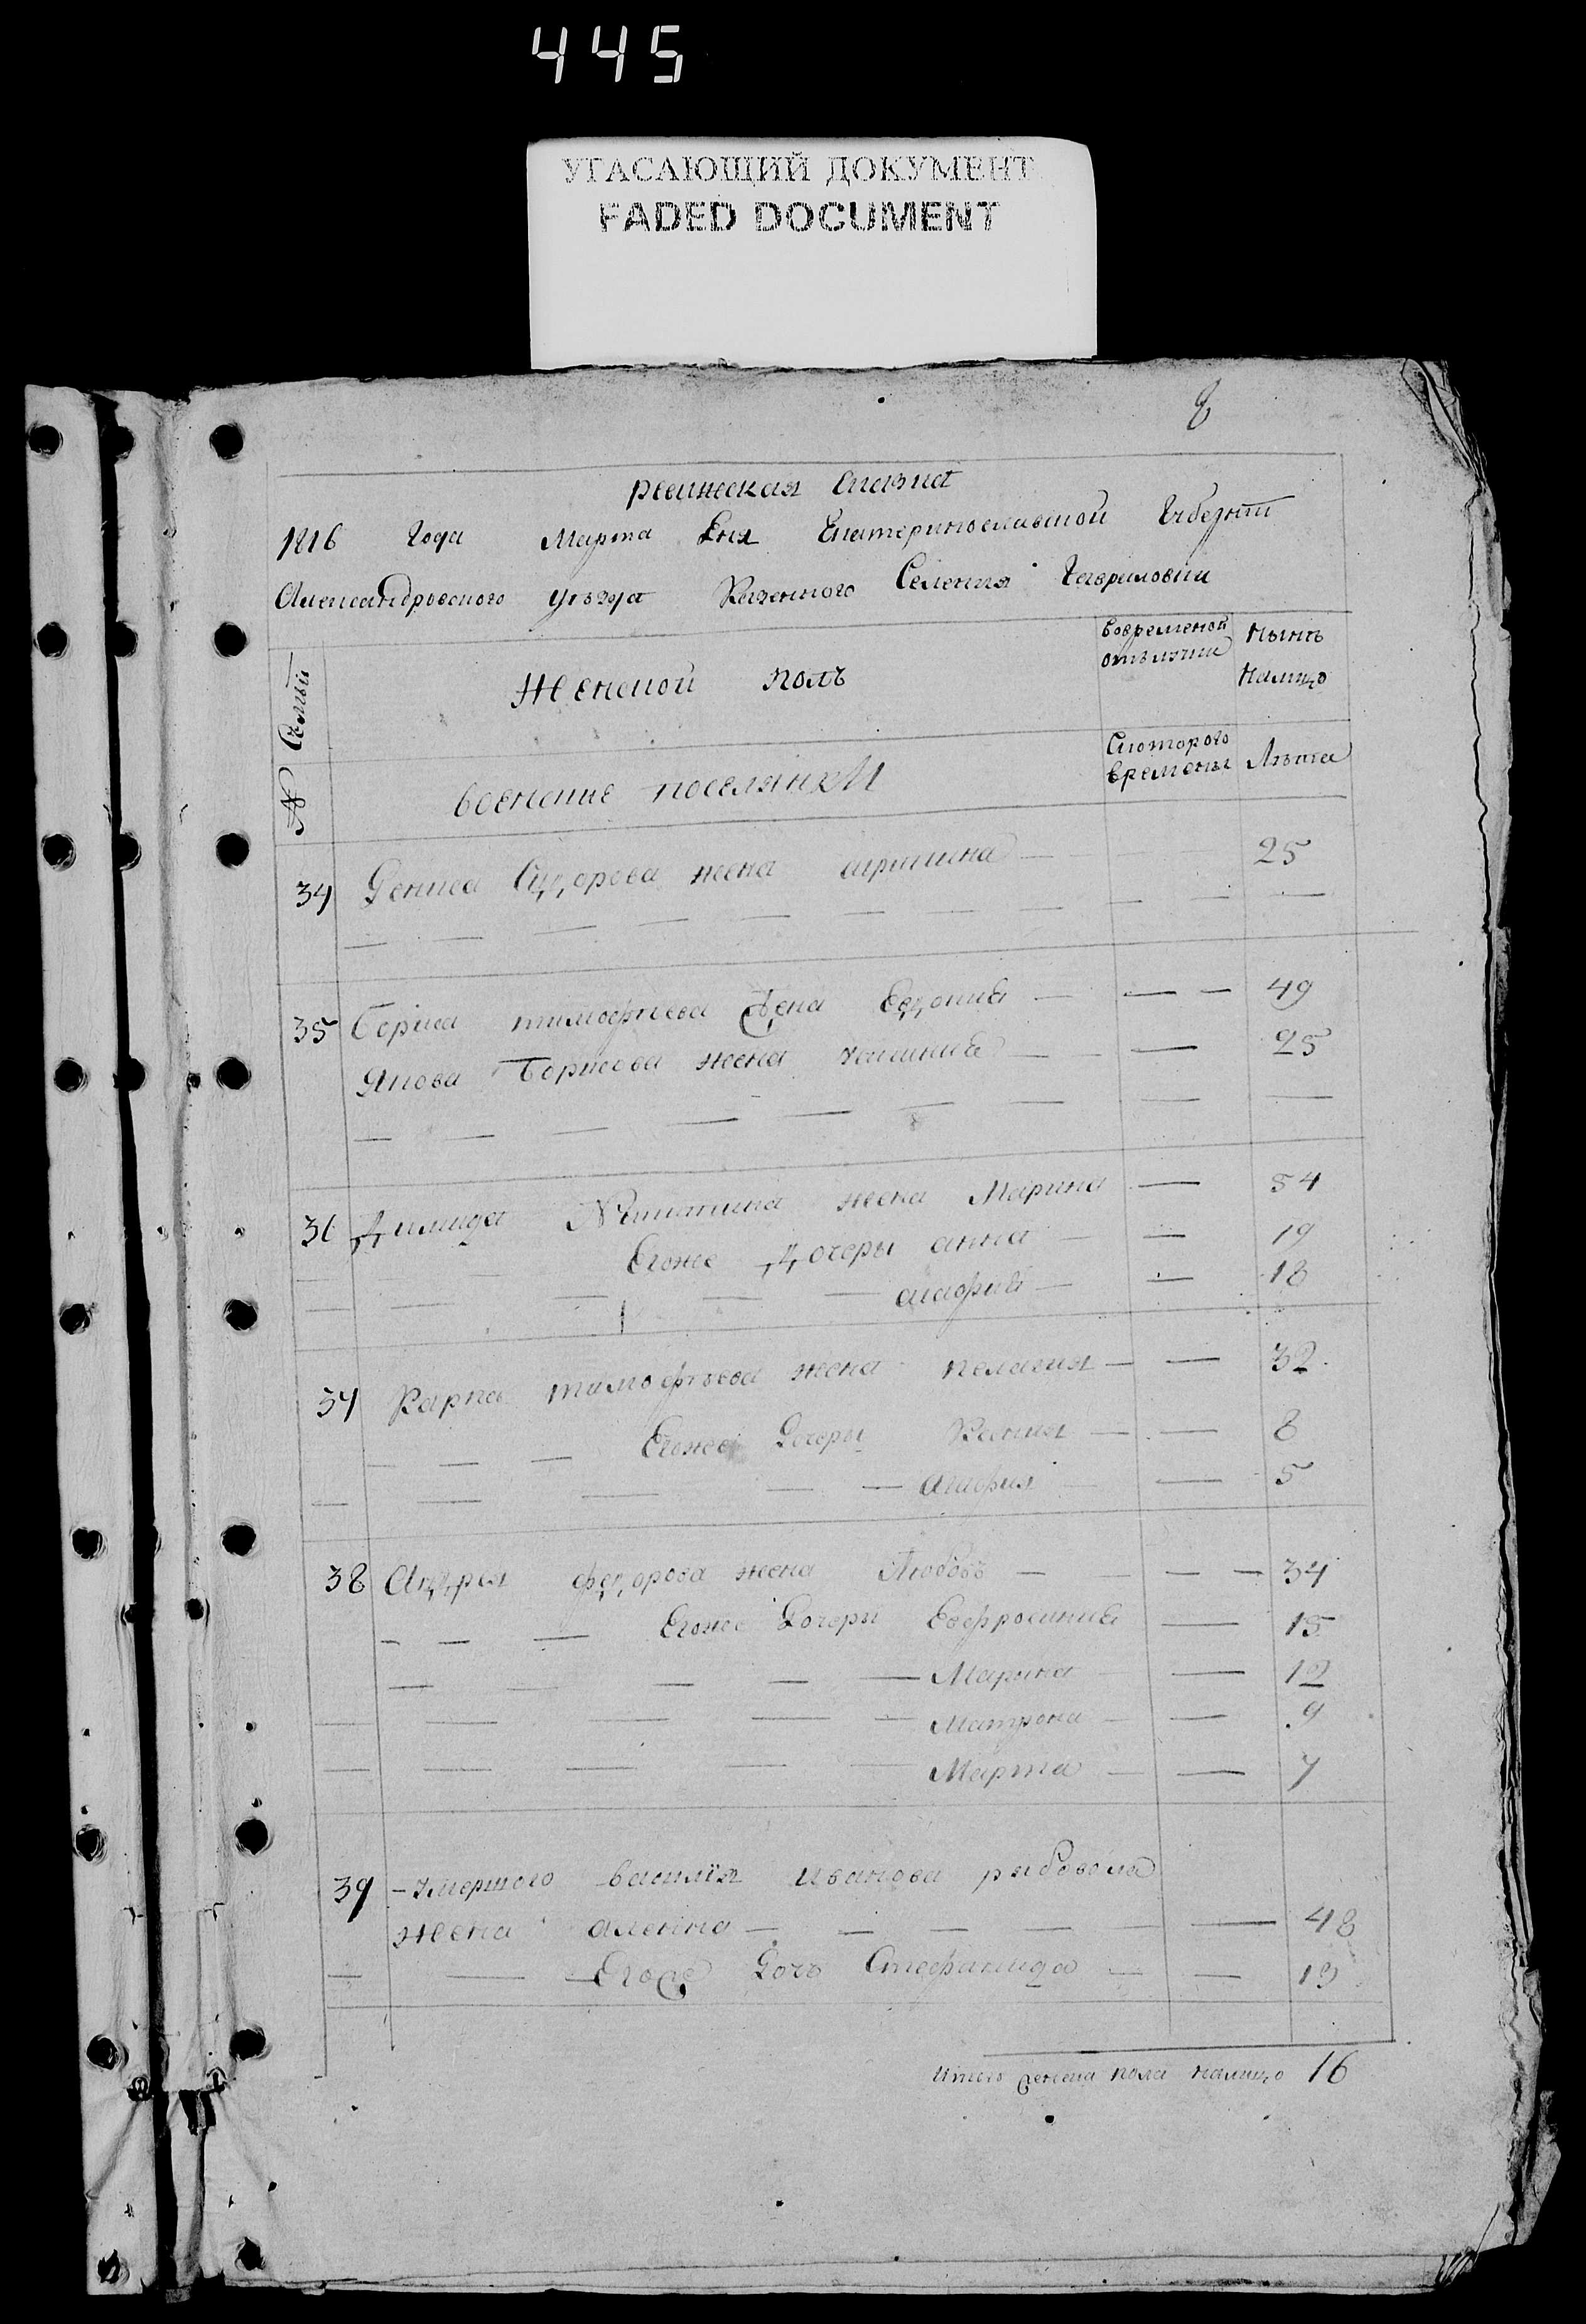 445
УГАСАЮЩИЙ ДОКУМЕНТ
FADED DOCUMENT
8
ревижская сказка
1816 Года Марта Дня Екатеринославской Губернии
Александровского уъзда Казенного Селения Гавриловки
№ Семьи
Женской полъ
вовременой отълучки
Нынъ Налицо
военские поселянки
Скоторого времены
Лъта
34 Дениса Сидорова жена агрипина — 25
35 Бориса тимофиева жена Евдокия — 49
Якова Борисова жена — 25
36 Димида жена Марина — 54
Егоже Дочеры анна — 19
агафия — 18
37 Карпа тимофъева жена пелагия — 32
Егоже Дочеры Ксения — 8
Агафия — 5
38 Андрея федорова жена Любовъ — 34
Егоже Дочеры Евфросиния — 15
Марина — 12
Матрона — 9
Марта — 7
39 — умершого василія иванова рыбовола
жена аленна — 48
Егоже Дочъ Стефанида — 19
Итого женска пола налицо 16